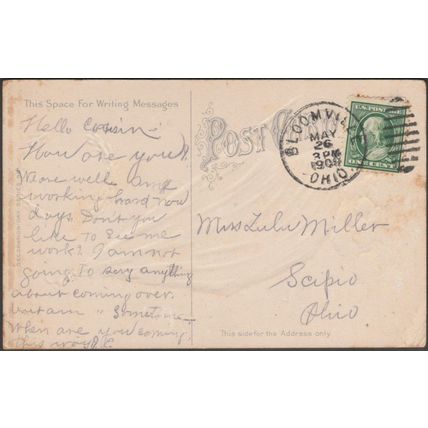 This Space For Writing Messages
Hello Cousin:
How are you?
We're well and
working hard now
days. Don't you
like to see me
work? I am not
going to say anything
about coming over
but am "sometime"
When are you coming
this way?
POST CARD
BLOOMVILLE
MAY
26
3 PM
OHIO
U.S. POSTAGE
ONE CENT
Miss Lulu Miller
Scipio
Ohio
This side for the Address only